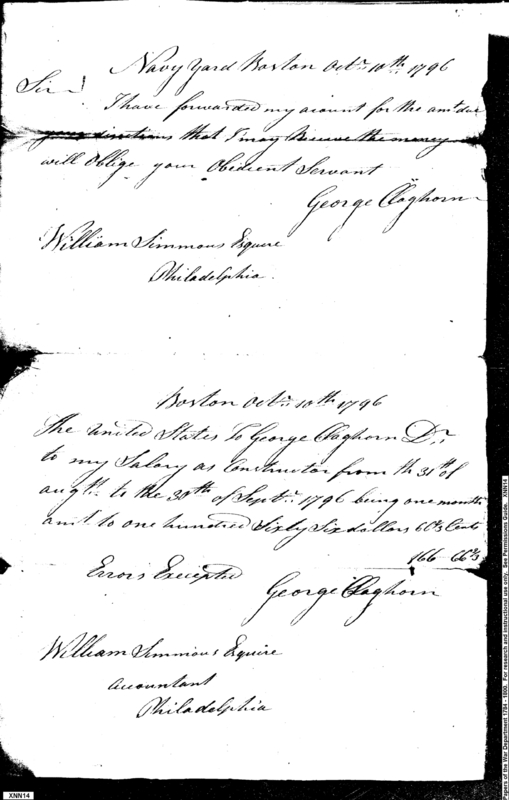 Navy Yard Boston Octr 10th 1796
Sir
I have forwarded my acount for the amt due
your directions that I may Receve the money
will oblige your Obedient Servant
George Claghorn
William Simmons Esquire
Philadelphia
Boston Octr 10th 1796
The United States To George Claghorn Dr
to my Salary as Constructor from th 31th of
augth to the 30th of Septr 1796 being one month
amt to one hundred Sixty Six dollars 66⅔ Cents
166 66⅔
Errors Excepted
George Claghorn
William Simmons Esquire
accountant
Philadelphia
XNN14
Papers of the War Department 1784 - 1800. For research and instructional use only. See Permissions Guide. XNN14